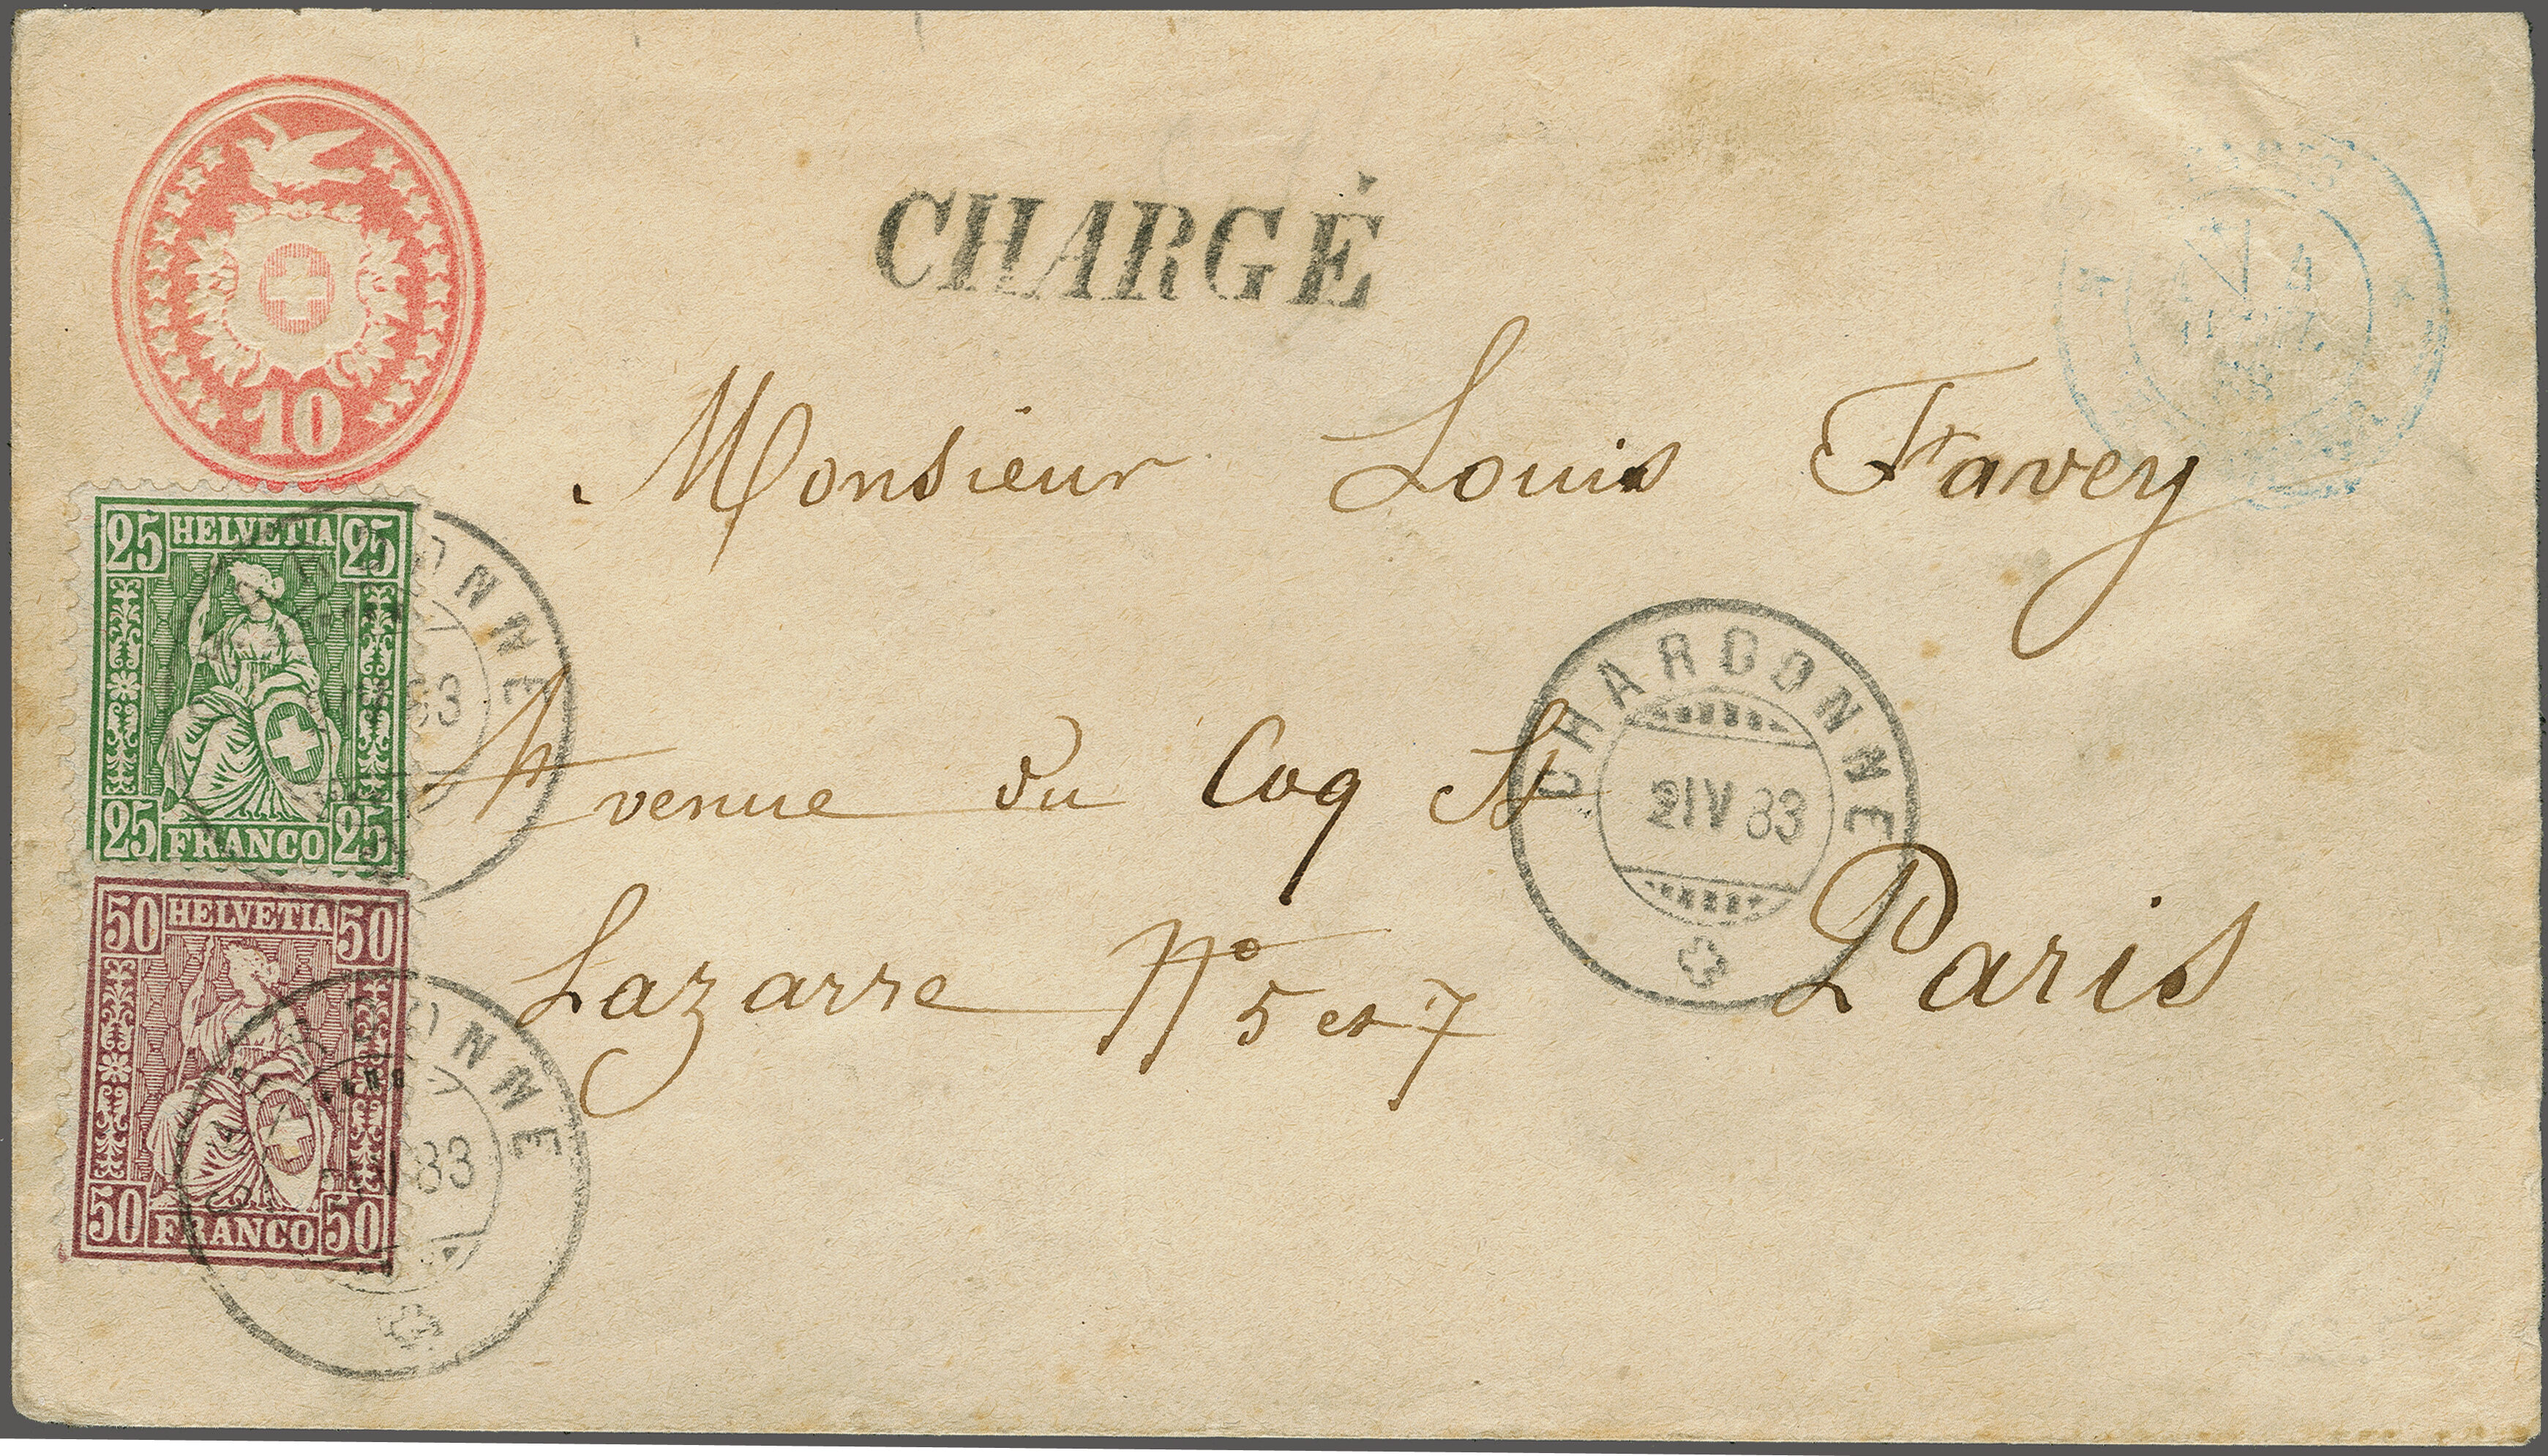 10
CHARGÉ
Monsieur Louis Favey
25 HELVETIA 25
25 FRANCO 25
Avenue du Coq St
CHARDONNE
2 IV 83
Lazarre No 5 et 7 Paris
50 HELVETIA 50
50 FRANCO 50
ONNE
83
ONNE
83